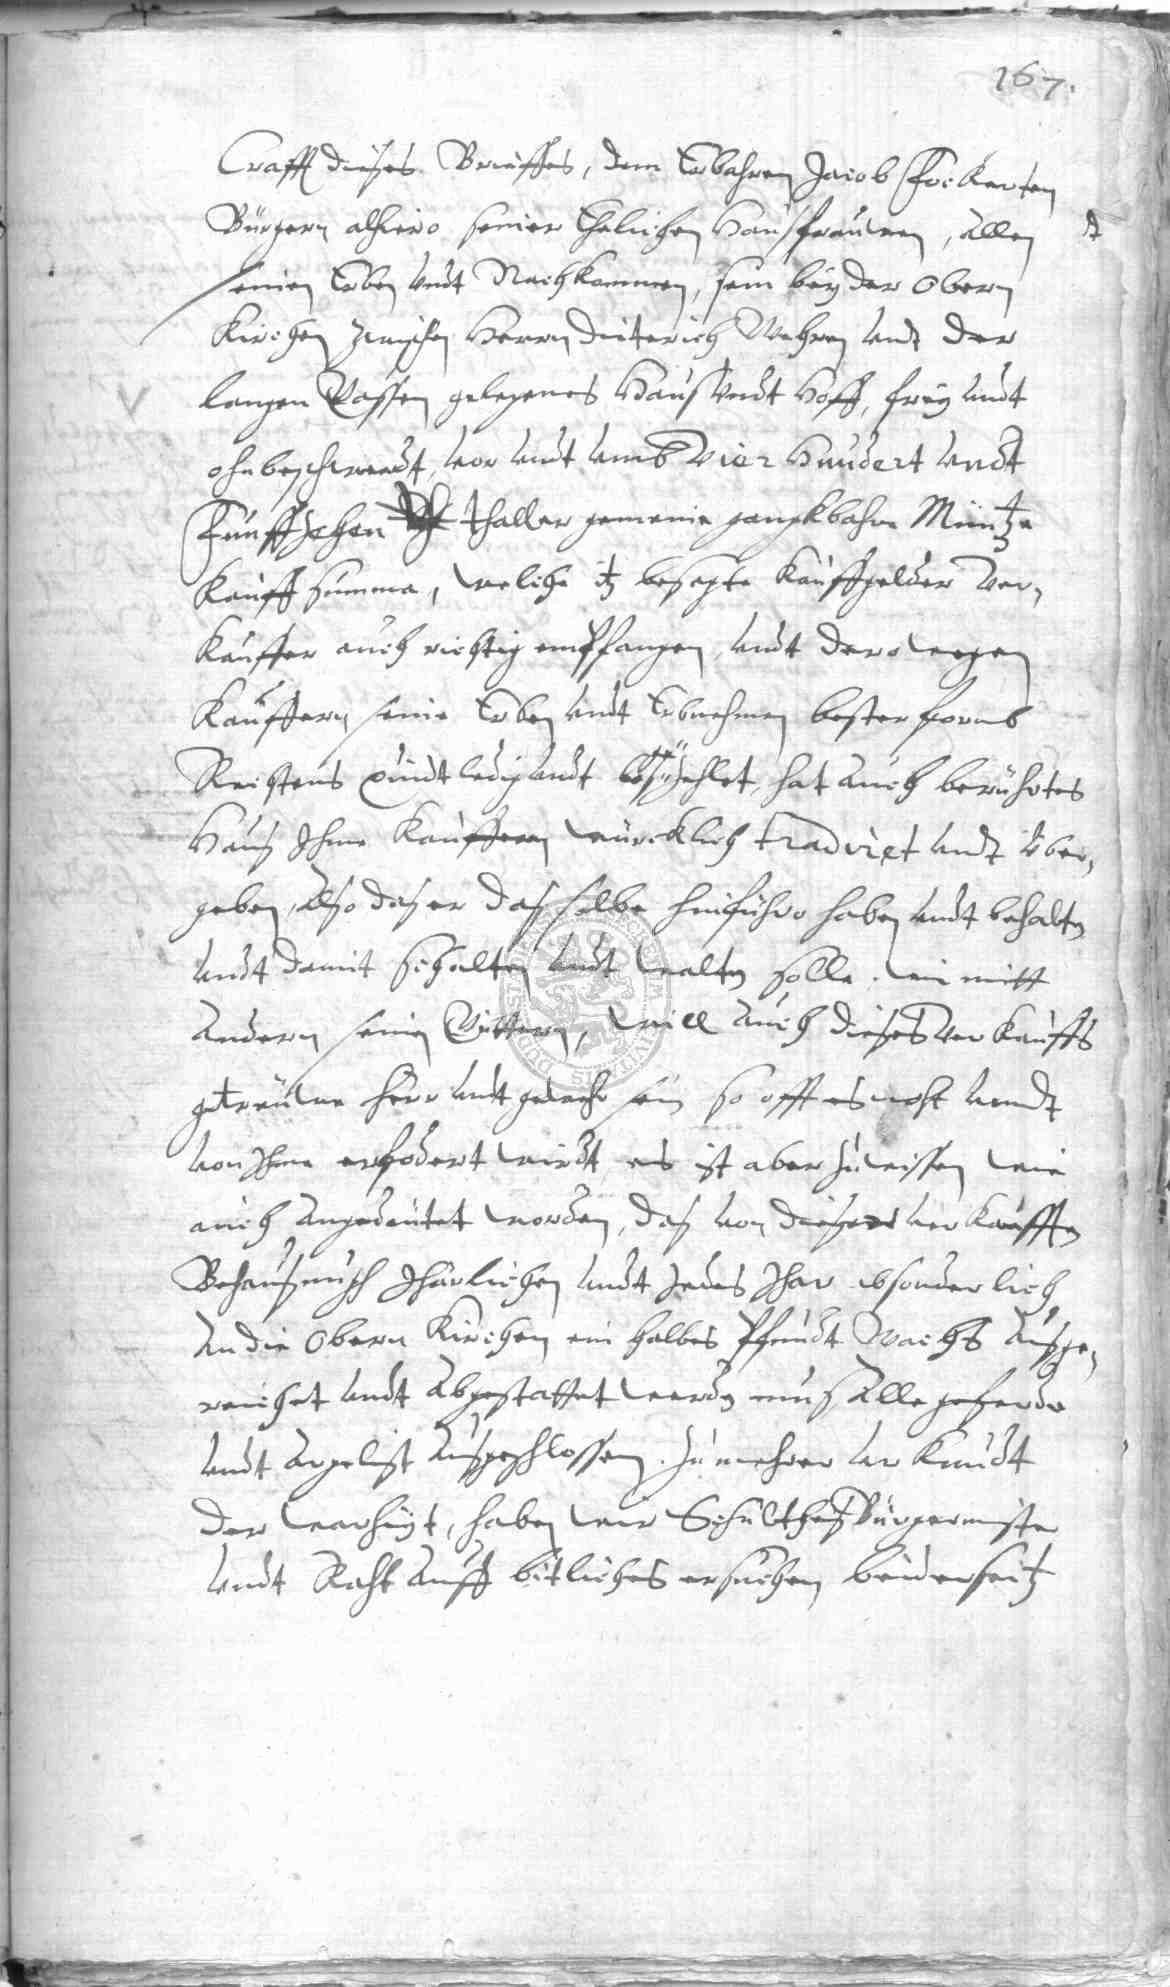 167.
Crafft dieses Brieffes, dem Erbahren Jacob Fockerten
Bürgern alhiero seiner Ehelichen Hausfrauwen, allen
seinen Erben undt Nachkommen, sein bey der Obern
Kirchen zwischen Herrn Dieterich Wehren undt der
langen Gassen gelegenes Hauß undt Hoff, frey undt
ohnbeschwerdt, vor undt umb Vier Hundert undt
Fünffzehen thaller gemeine gangkbahre Müntze
Kauff summa, welche itz besagte Kauffgelder Ver-
kauffer auch richtig empfangen, undt derowegen
Kauffern seine Erben undt Erbnehmen bester form
Rechtens quidt ledig undt loß zehlet, hat auch berührtes
Hauß Ihme Kauffern würcklich tradiret undt über-
geben, Also daß er dasselbe hinführo haben undt behalten
undt damit schalten undt walten solle wie mitt
andern seinen Güttern, will auch dieses verkauffs
getreuwe Herr undt gewehr sein so offt es noht undt
von Ihme erfodert wirdt, es ist aber zuwissen wie
auch angedeutet worden, daß von dieser verkaufften
Behausungh Jhärlichen undt Jedes Jhar absonderlich
An die Obern Kirchen ein halbes Pfundt Wachs außge-
reichet undt abgestattet werden muß Alle geferde
undt argelist außgeschlossen. Zu mehrer urkundt
der warheyt, haben wir Schultheß Bürgermeister
undt Raht auff bitliches ersuchen beiderseitz